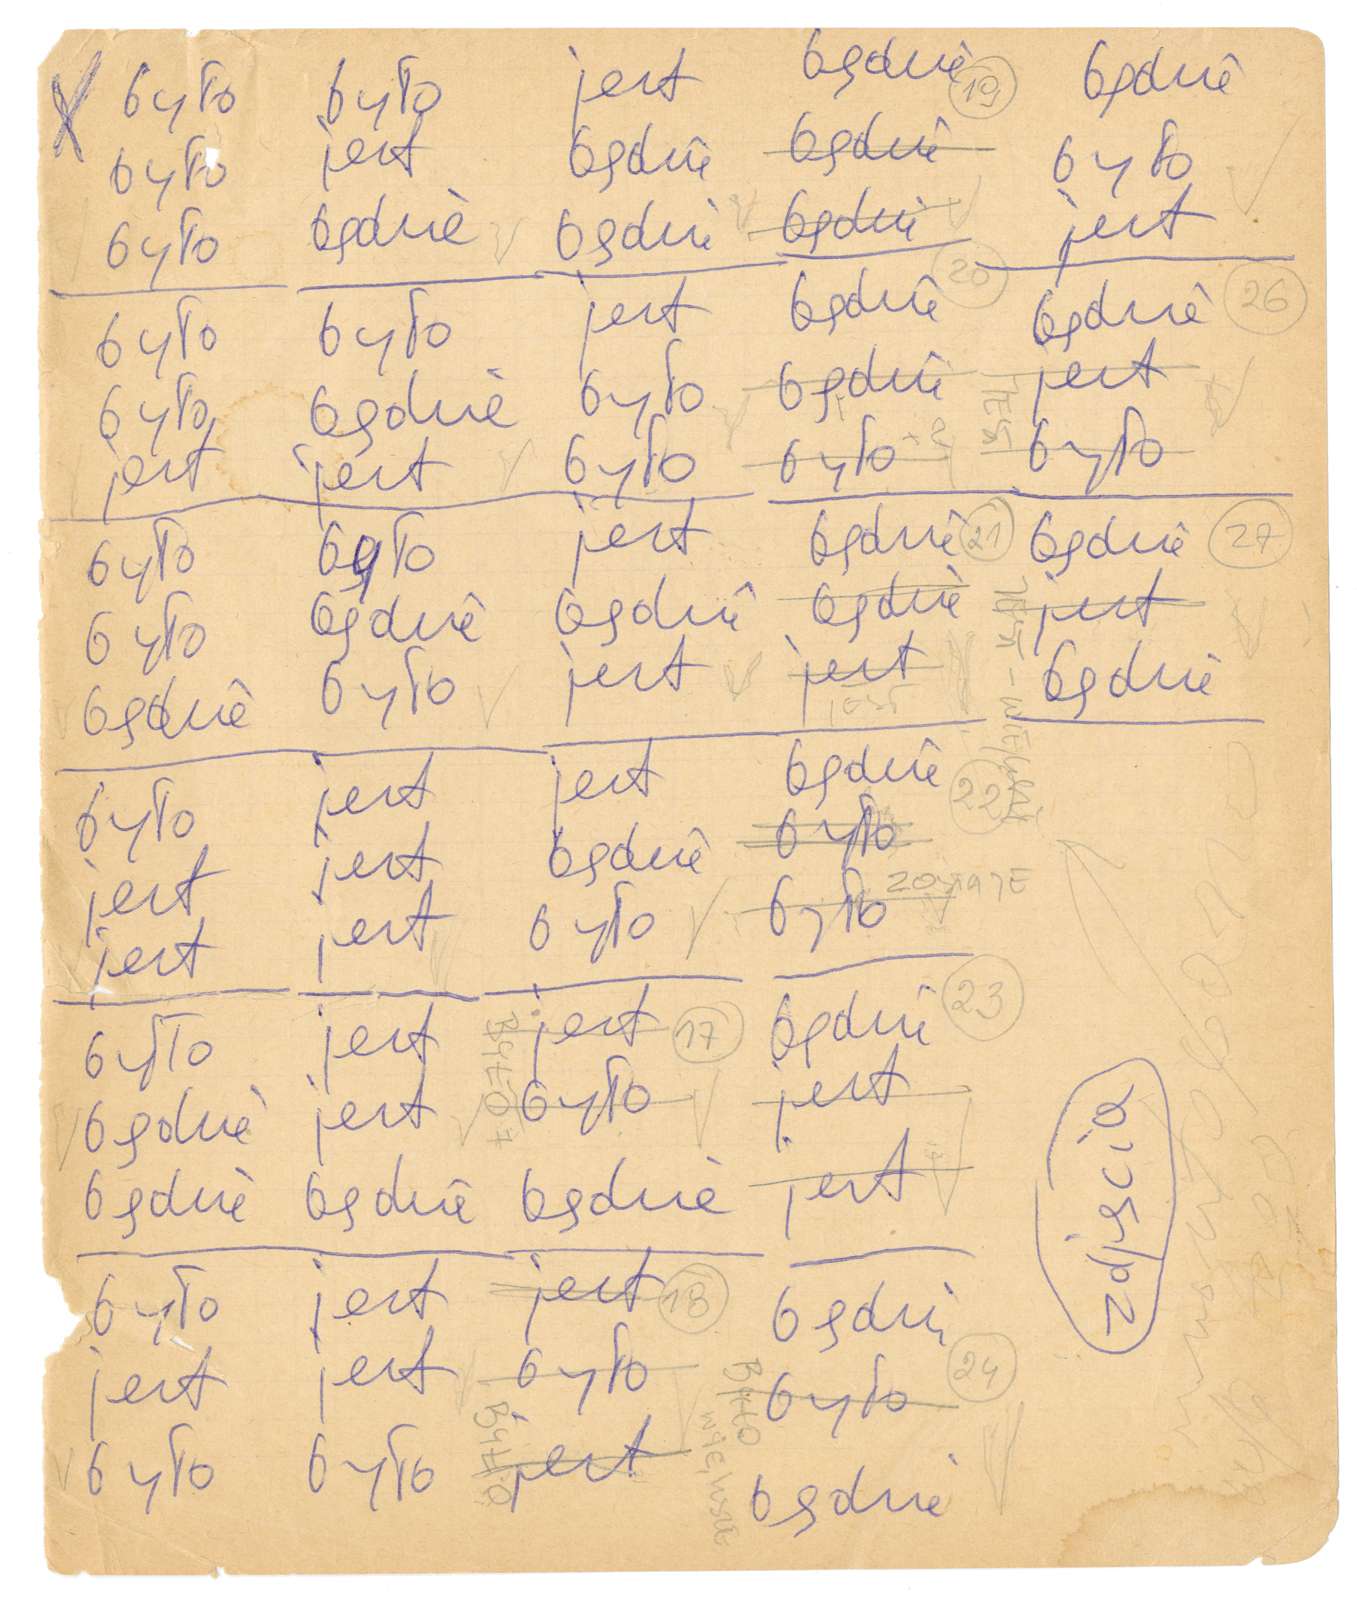 X
było
było
było
było
było
jest
było
było
będzie
było
jest
jest
było
będzie
będzie
było
jest
było
było
jest
będzie
było
będzie
jest
było
będzie
było
jest
jest
jest
jest
jest
będzie
jest
jest
było
jest
będzie
będzie
jest
było
było
jest
będzie
jest
jest
będzie
było
jest 17
było
będzie
BYŁO
jest 18
było
jest
BYŁO
będzie 19
będzie
będzie
20
będzie
będzie
było
JEST
będzie 21
będzie
jest
JEST
będzie
22
było
było
ZOSTAJE
23
będzie
jest
jest
będzie
24
było
będzie
BYŁO
będzie
było
jest
będzie 26
jest
było
będzie 27
jest
będzie
zdjęcia